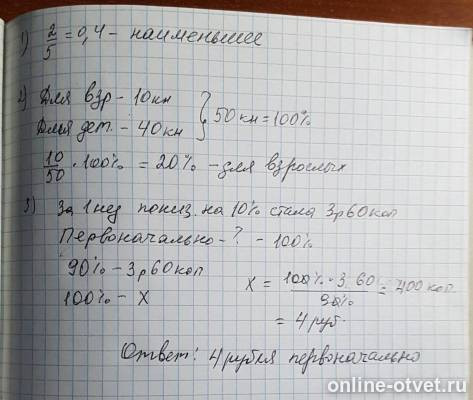 1) 2/5 = 0,4 - наименьшее
2) Для взр - 10кн
Для дет. - 40кн } 50 кн = 100%
10/50 · 100% = 20% - для взрослых
3) За 1 нед пониз. на 10% стала 3р60коп
Первоначально - ? - 100%
90% - 3р60коп
100% - X
X = 100% · 3,60 / 90% = 400 коп.
= 4 руб.
Ответ: 4 рубля первоначально
online-otvet.ru